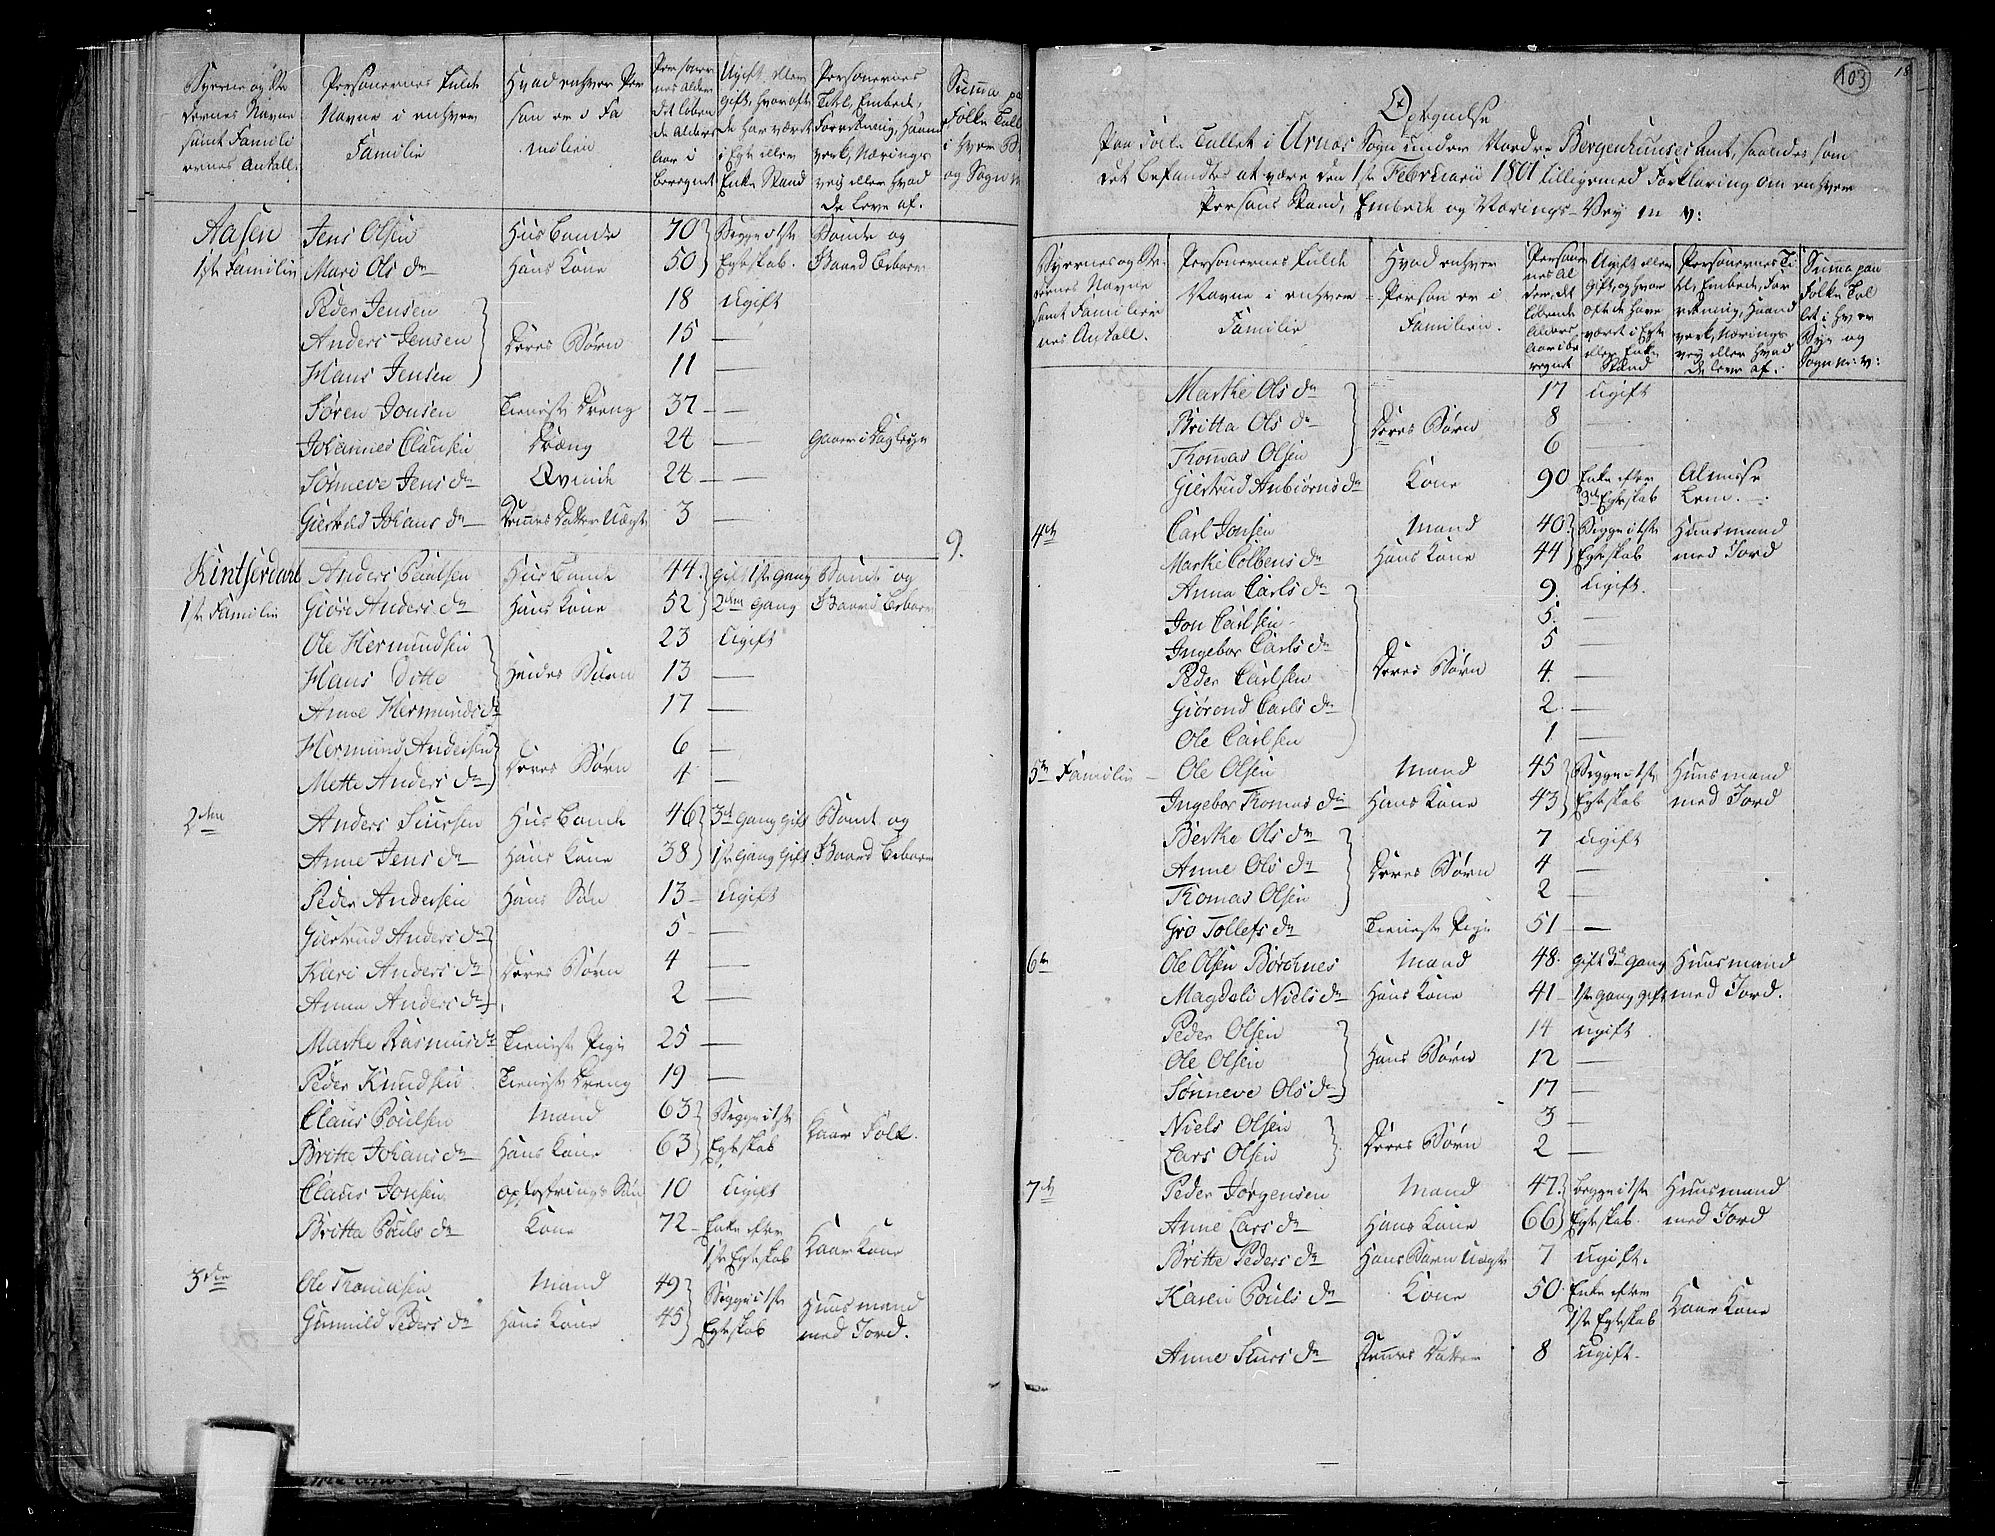 Byernes og Gaardernes Navne samt Familiernes Antall. | Personernes fulde Navne i enhver Familie | Hvad enhver Person er i Familien | Personernes Alder det løbende Alders Aar iberegnet | Ugift eller Gift, hvor ofte de har været i Egte eller Enke Stand | Personernes Titel, Embede, Forretning, Haandverk, Nærings vey eller hvad de leve af. | Summa paa Folke Tall i hver B og Sogn
Aasen | Jens Olsen | Huusbonde | 70 | Begge i 1ste | Bonde og
1ste Familie | Mari Ols dr | Hans Kone | 50 | Egteskab. | Gaard beboer
Peder Jensen | 18 | Ugift
Anders Jensen | Deres Børn | 15 | —
Hans Jensen | 11 | —
Søren Jonsen | Tieniste Dreng | 37 | —
Johannes Clausen | Dræng | 24 | — | Gaaer i Dagleye
Sønneve Jens dr | Qvinde | 24 | —
Giertrud Johans dr | Dennes Datter Uægte | 3 | —
9.
Kintserdahl | Anders Poulsen | Huusbonde | 44. | Gift 1ste Gang | Bonde og
1ste Familie | Giøri Anders dr | Hans Kone | 52 | 2den Gang | Gaard beboer
Ole Hermundsen | 23 | Ugift
Hans Ditto | Hendes Børn | 13 | —
Anne Hermunds dr | 17 | —
Hermund Andersen | 6 | —
Mette Anders dr | Deres Børn | 4 | —
2den | Anders Siursen | Huusbonde | 46 | 3die Gang Gift | Bonde og
Anne Jens dr | Hans Kone | 38 | 1ste Gang Gift. | Gaard beboer
Peder Andersen | Hans Søn | 13 | Ugift
Giertrud Anders dr | 5 | —
Kari Anders dr | Deres Børn | 4 | —
Anna Anders dr | 2 | —
Marthe Rasmus dr | Tieniste Pige | 25 | —
Peder Knudsen | Tieniste Dreng | 19 | —
Claus Poulsen | Mand | 63 | Begge i 1ste | Kaar Folk.
Britte Johans dr | Hans Kone | 63 | Egteskab
Claus Jonsen | opfostrings Søn | 10 | Ugift
Britta Pouls dr | Kone | 72 | Enke efter 1ste Egteskab | Kaar Kone
3die | Ole Thomasen | Mand | 49 | Begge i 1ste | Huusmand
Gunnild Peders dr | Hans Kone | 45 | Egteskab | med Jord.
103
18
Optegnelse
Paa Folke Tallet i Urnes Sogn under Nordre Bergenhuuses Amt, saaledes som
det befandtes at være den 1ste Februarii 1801 tilligemed Forklaring om enhver
Persons Stand, Embede og Nærings-Vey m v:
Byernes og Gaardernes Navne samt Familiernes Antall. | Personernes fulde Navne i enhver Familie | Hvad enhver Person er i Familien. | Personernes Alder, det løbende Alders Aar iberegnet | Ugift eller Gift, og hvor ofte de have været i Egte eller Enke Stand | Personernes Titel, Embede, Forretning, Haandverk, Nærings vey eller hvad de leve af. | Summa paa Folke Tallet i hver Bye og Sogn m: v:
Marthe Ols dr | 17 | Ugift
Britta Ols dr | Deres Børn | 8 | —
Thomas Olsen | 6 | —
Giertrud Anbiørns dr | Kone | 90 | Enke efter 3die Egteskab | Almisse Lem.
4de | Carl Jonsen | Mand | 40 | Begge i 1ste | Huusmand
Marthe Colbens dr | Hans Kone | 44 | Egteskab | med Jord
Anna Carls dr | 9. | Ugift.
Jon Carlsen | 5. | —
Ingebor Carls dr | 5 | —
Peder Carlsen | Deres Børn | 4. | —
Giørond Carls dr | 2. | —
Ole Carlsen | 1 | —
5te Familie | Ole Olsen | Mand | 45 | Begge i 1ste | Huusmand
Ingebor Thomas dr | Hans Kone | 43 | Egteskab | med Jord
Berthe Ols dr | 7 | Ugift
Anne Ols dr | Deres Børn | 4 | —
Thomas Olsen | 2 | —
Gro Tollefs dr | Tieniste Pige | 51 | —
6te | Ole Olsen Børdnes | Mand | 48. | Gift 3de Gang | Huusmand
Magdeli Niels dr | Hans Kone | 41 | 1ste Gang Gift | med Jord.
Peder Olsen | 14 | Ugift
Ole Olsen | Hans Børn | 12 | —
Sønneve Ols dr | 17 | —
Niels Olsen | 3 | —
Lars Olsen | Deres Børn | 2 | —
7de | Peder Jørgensen | Mand | 47. | Begge i 1ste | Huusmand
Anne Lars dr | Hans Kone | 66 | Egteskab. | med Jord
Britte Peders dr | Hans Barn Uægte | 7 | Ugift.
Karen Pouls dr | Kone | 50. | Enke efter 1ste Egteskab | Kaar Kone
Anne Siurs dr | Dennes Datter | 8 | Ugift.